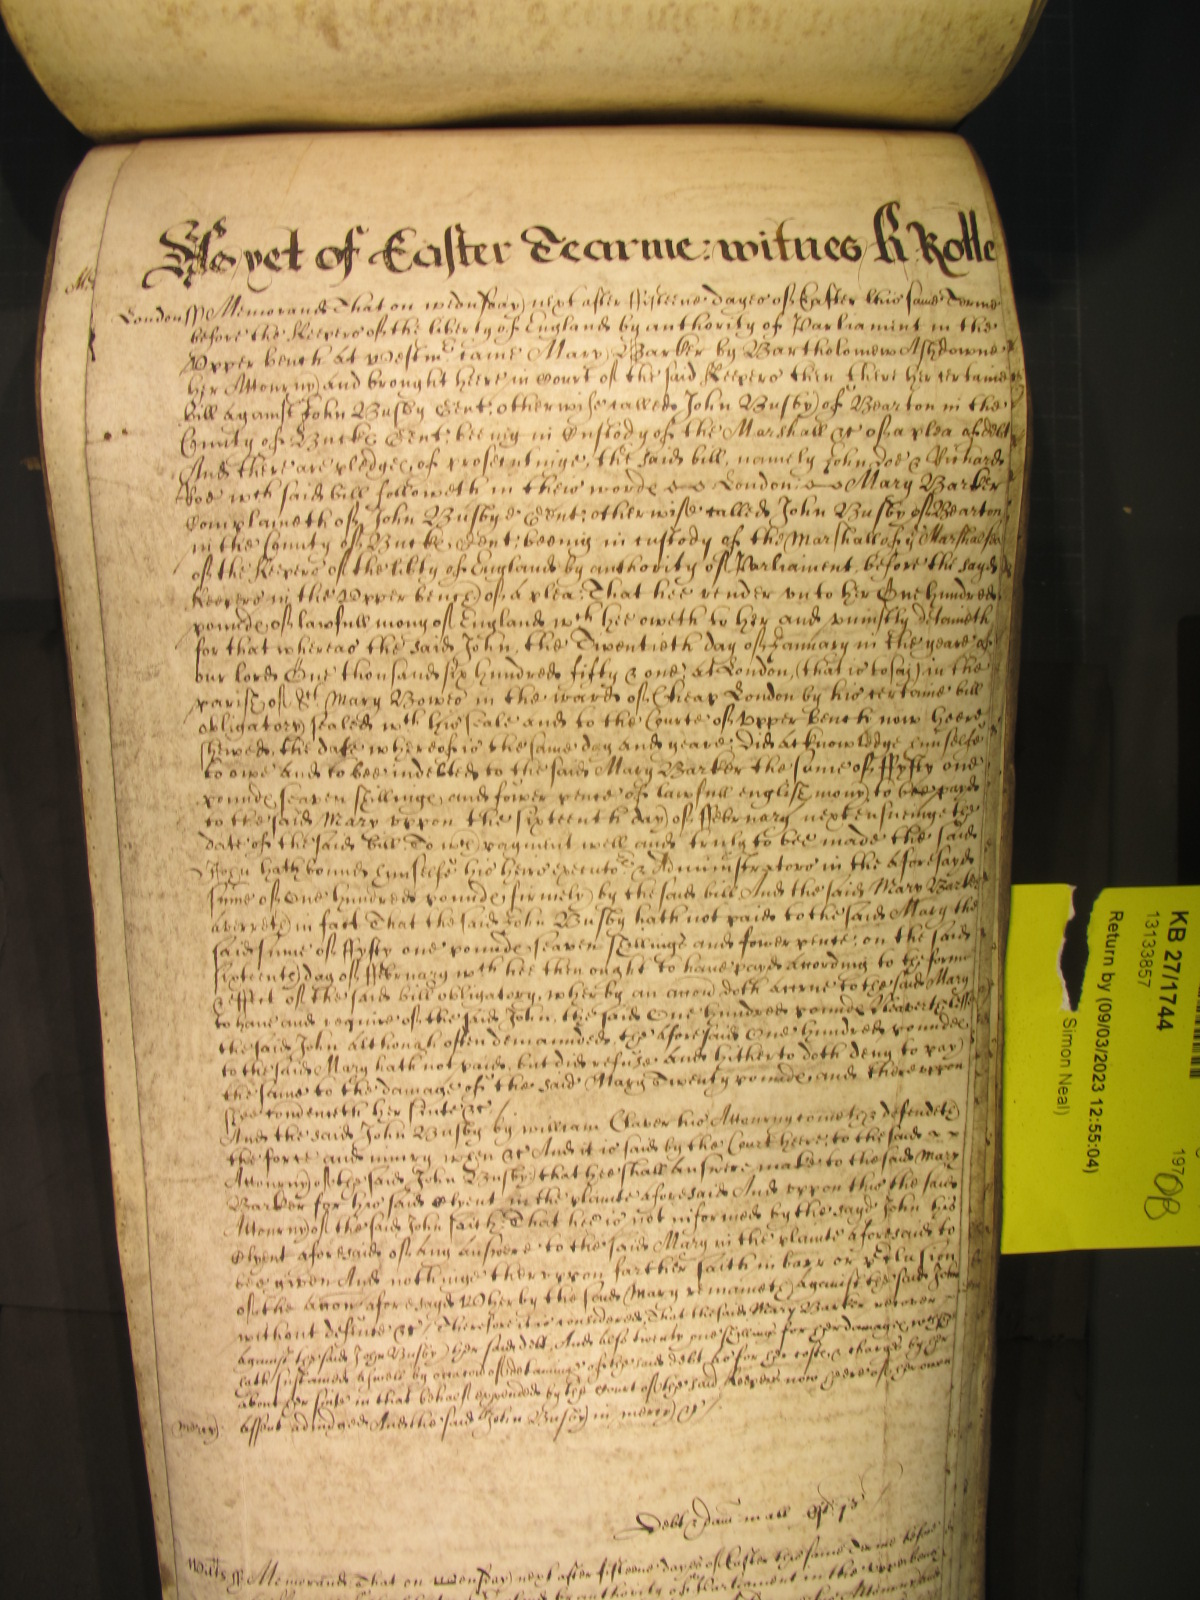 As yet of Easter Tearme: witnes H Rolle
London ss Memorand That on wednsday next after fifteene dayes of Easter this same Terme
before the Keepers of the liberty of England by authority of Parliamint in the
Upper bench at Westmr came Mary Barker by Bartholomew Ashdowne
her Attourny and brought heere in Court of the said Keepers then there her certaine
bill against John Busby Gent: otherwise called John Busby of Bearton in the
County of Bucks Gent: beeing in Custody of the Marshall &c of a plea of debt
And there are pledges of prosecutinge the said bill, namely John Doe & Richard
Roe wch said bill followeth in theis words London Mary Barker
Complaineth of John Busbye Gent: otherwise called John Busby of Bearton
in the County of Bucks, Gent: beeing in custody of the Marshall of ye Marshalsea
of the Keepers of the libty of England by authority of Parliament, before the sayd
Keepers in the Upper bench of a plea: That hee render unto her One hundred
pounds of lawfull mony of England wch hee oweth to her and uniustly detaineth
for that whereas the said John, the Twentieth day of January in the yeare of
our lord One thousand six hundred fifty & one, at London, (that is to say) in the
parish of St Mary Bowes in the ward of Cheap London by his certaine bill
obligatory sealed wth his seale and to the Courte of Upper bench now heere
shewed, the date whereof is the same day and yeare: Did acknowledge himselfe
to owe and to bee indebted to the said Mary Barker the sume of ffyfty one
pounds seaven shillings and fower pence of lawfull english mony to bee payd
to the said Mary uppon the sixteenth day of ffebruary next ensueinge the
date of the said bill To wch payment well and truly to bee made the said
John hath bound himselfe his heires executors & Administrators in the aforesayd
sume of One hundred pounds firmely by the said bill And the said Mary Barker
averreth in fact That the said John Busby hath not paid to the said Mary the
said sume of ffyfty one pounds seaven shillings and fower pence, on the said
sixteenth day of ffebruary wch hee then ought to have payd according to the forme
& effect of the said bill obligatory, wherby an accion doth accrue to the said Mary
to have and require of the said John, the said One hundred pounds Neverthelesse
the said John although often demaunded, the aforesaid One hundred pounds
to the said Mary hath not paid, but did refuse And hitherto doth deny to pay
the same to the damage of the said Mary Twenty pounds, and thereuppon
shee produceth her suite &c
And the said John Busby by William Claver his Attourny cometh & defendeth
the force and iniury when &c And it is said by the Court heere, to the said
Attourny of the said John Busby that hee shall answere make to the said Mary
Barker for his said Clyent in the plainte aforesaid And uppon this the said
Attourny of the said John saith, That hee is not informed by the sayd John his
Clyent aforesaid of any answere to the said Mary in the plainte aforesaid to
bee given And nothinge thereuppon farther saith in barr or preclusion
of the accon aforesayd Wherby the said Mary remaineth against the said John
without defence &c Therefore it is considered, That the said Mary Barker recover
against the said John Busby her said debt, And also twenty one shillings for her damages wch shee
hath susteined aswell by occacon of detaininge of the said debt, as for her costs & charges by her
about her suite in that behalf expended by the Court of the said Keepers now heere of her owne
assent adiudged And the said John Busby in mercy &c
mercy
Debt & dam in all
Wilts ss Memorand That on wensday next after fifteene dayes of Easter this same Terme before
by authority of Parliament in the Upper bench
KB 27/1744
13133857
Return by (09/03/2023 12:55:04)
Simon Neal)